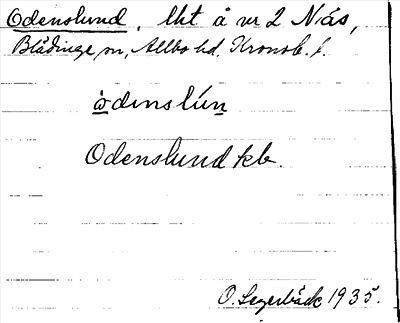 Odenslund, lht å nr 2 Näs,
Blädinge sn, Allbo hd, Kronob. l.
òdₙnslún
Odenslund kb.
O. Segerbäck 1935.